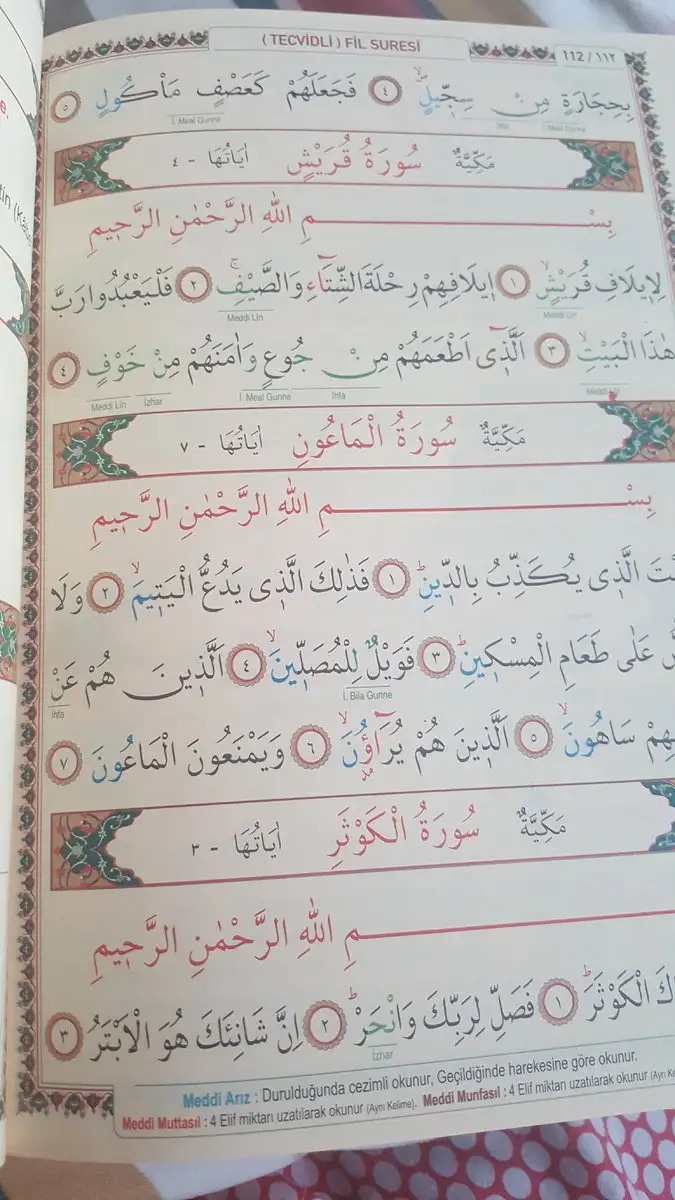 ( TECVİDLİ ) FİL SURESİ
112 / ١١٢
بِحِجَارَةٍ مِنْ سِجّ۪يلٍۙ ﴿٤﴾ فَجَعَلَهُمْ كَعَصْفٍ مَأْكُولٍ ﴿٥﴾
İ. Meal Gunne
İhfa
İ. Meal Gunne
مَكِّيَّةٌ سُورَةُ قُرَيْشٍ اٰيَاتُهَا - ٤
بِسْمِ اللّٰهِ الرَّحْمٰنِ الرَّح۪يمِ
لِا۪يلَافِ قُرَيْشٍۙ ﴿١﴾ ا۪يلَافِهِمْ رِحْلَةَ الشِّتَٓاءِ وَالصَّيْفِۚ ﴿٢﴾ فَلْيَعْبُدُوا رَبَّ
Meddi Lin
Meddi Lin
هٰذَا الْبَيْتِۙ ﴿٣﴾ اَلَّذ۪ٓي اَطْعَمَهُمْ مِنْ جُوعٍ وَاٰمَنَهُمْ مِنْ خَوْفٍ ﴿٤﴾
Meddi Lin
İhfa
İ. Meal Gunne
İzhar
Meddi Lin
مَكِّيَّةٌ سُورَةُ الْمَاعُونِ اٰيَاتُهَا - ٧
بِسْمِ اللّٰهِ الرَّحْمٰنِ الرَّح۪يمِ
الَّذ۪ي يُكَذِّبُ بِالدّ۪ينِۜ ﴿١﴾ فَذٰلِكَ الَّذ۪ي يَدُعُّ الْيَت۪يمَۙ ﴿٢﴾ وَلَا
عَلٰى طَعَامِ الْمِسْك۪ينِۜ ﴿٣﴾ فَوَيْلٌ لِلْمُصَلّ۪ينَۙ ﴿٤﴾ اَلَّذ۪ينَ هُمْ عَنْ
İ. Bila Gunne
İhfa
سَاهُونَۙ ﴿٥﴾ اَلَّذ۪ينَ هُمْ يُرَٓاؤُ۫نَۙ ﴿٦﴾ وَيَمْنَعُونَ الْمَاعُونَ ﴿٧﴾
مَكِّيَّةٌ سُورَةُ الْكَوْثَرِ اٰيَاتُهَا - ٣
مِ اللّٰهِ الرَّحْمٰنِ الرَّح۪يمِ
الْكَوْثَرَۜ ﴿١﴾ فَصَلِّ لِرَبِّكَ وَانْحَرْۜ ﴿٢﴾ اِنَّ شَانِئَكَ هُوَ الْاَبْتَرُ ﴿٣﴾
İzhar
Meddi Arız : Durulduğunda cezimli okunur, Geçildiğinde harekesine göre okunur.
Meddi Muttasıl : 4 Elif miktarı uzatılarak okunur (Aynı Kelime). Meddi Munfasıl : 4 Elif miktarı uzatılarak okunur